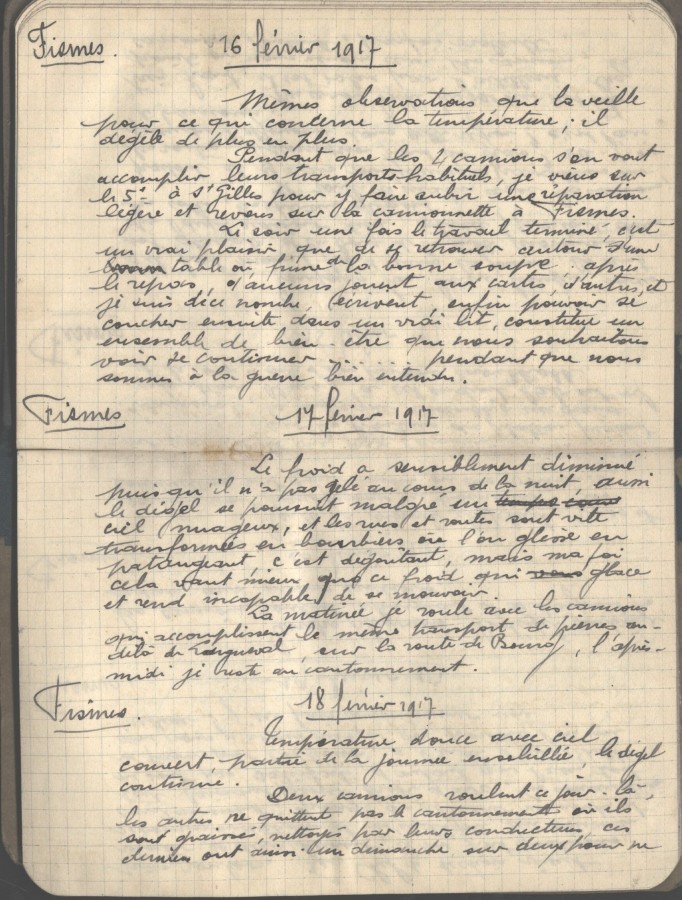 Fismes. 16 février 1917
Mêmes observations que la veille
pour ce qui concerne la température ; il
dégèle de plus en plus.
Pendant que les 4 camions s'en vont
accomplir leurs transports habituels, je viens sur
le 5e à St Gilles pour y faire subir une réparation
légère et reviens sur la camionnette à Fismes.
Le soir une fois le travail terminé, c'est
un vrai plaisir que de se retrouver autour d'une
table où fume de la bonne soupe ; après
le repas, d'aucuns jouent aux cartes, d'autres, et
je suis de ce nombre, écrivent, enfin pouvoir se
coucher ensuite dans un vrai lit, constitue un
ensemble de bien-être que nous souhaitons
voir se continuer ....... pendant que nous
sommes à la guerre bien entendu.
Fismes 17 février 1917
Le froid a sensiblement diminué
puisqu'il n'a pas gelé au cours de la nuit, aussi
le dégel se poursuit malgré un temps
ciel nuageux, et les rues et routes sont vite
transformées en bourbiers où l'on glisse en
pataugeant, c'est dégoûtant, mais ma foi
cela vaut mieux que ce froid qui vous glace
et rend incapable de se mouvoir.
La matinée je roule avec les camions
qui accomplissent le même transport de pierres au-
delà de sur la route de Bourg, l'après-
midi je reste au cantonnement.
Fismes. 18 février 1917
Température douce avec ciel
couvert, partie de la journée ensoleillée, le dégel
continue.
Deux camions roulent ce jour-là,
les autres ne quittent pas le cantonnement où ils
sont graissés, nettoyés par leurs conducteurs, ces
derniers ont ainsi un dimanche sur deux pour ne